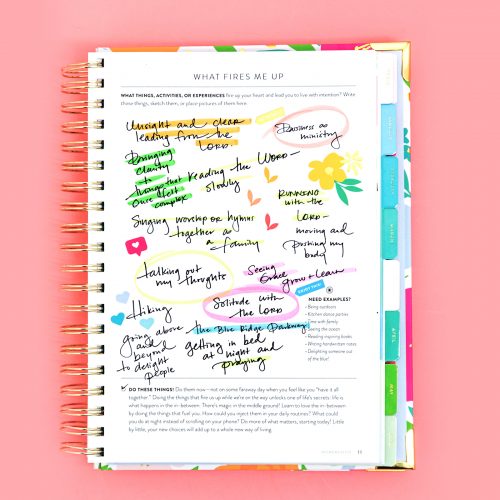 WHAT FIRES ME UP
WHAT THINGS, ACTIVITIES, OR EXPERIENCES fire up your heart and lead you to live with intention? Write
those things, sketch them, or place pictures of them here.
Insight and clear
leading from the
LORD.
Business as
ministry
Bringing
clarity
to
things that
once felt
complex
Reading the WORD—
slowly
RUNNING
with the
LORD—
moving and
pushing my
body
Singing worship or hymns
together as
a family
talking out
my thoughts
Seeing
Grace
grow + learn
Solitude with
the LORD
ENJOY THIS!
Hiking
going above
and
beyond
to delight
people
The Blue Ridge Parkway
getting in bed
at night and
praying
NEED EXAMPLES?
• Being outdoors
• Kitchen dance parties
• Time with family
• Seeing the ocean
• Reading inspiring books
• Writing handwritten notes
• Delighting someone out
of the blue!
DO THESE THINGS! Do them now—not on some faraway day when you feel like you "have it all
together." Doing the things that fire us up while we're on the way unlocks one of life's secrets: life is
what happens in the in-between. There's magic in the middle ground! Learn to love the in-between by
doing the things that fuel you. How could you inject them in your daily routines? What could
you do at night instead of scrolling on your phone? Do more of what matters, starting today! Little
by little, your new choices will add up to a whole new way of living.
MARCH
APRIL
MAY